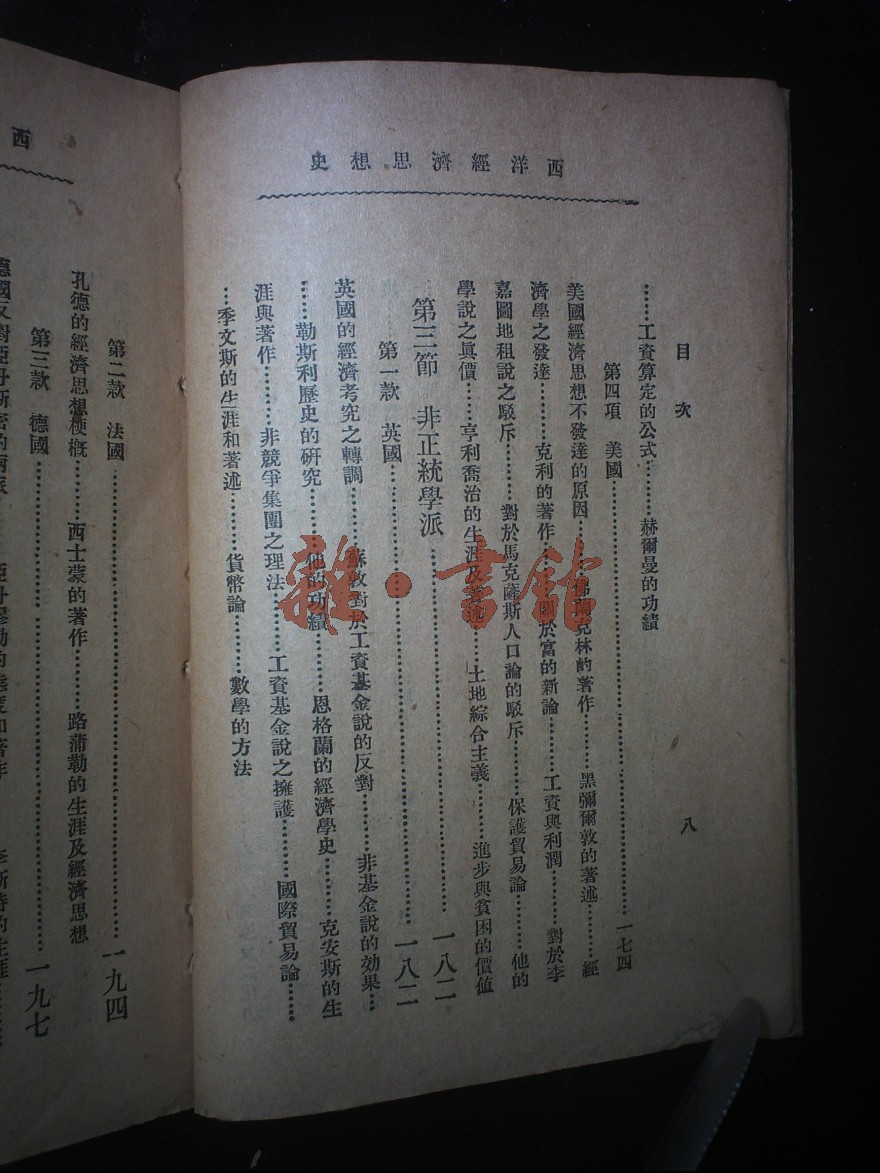 西洋經濟思想史
目次
八
……工資算定的公式………赫爾曼的功績
第四項 美國……………………一七四
美國經濟思想不發達的原因………佛蘭克林的著作………黑彌爾敦的著述………經
濟學之發達………克利的著作………關於富的新論………工資與利潤………對於李
嘉圖地租說之駁斥………對於馬克薩斯人口論的駁斥………保護貿易論………他的
學說之眞價………亨利喬治的生涯及著述………土地綜合主義………進步與貧困的價值
第三節 非正統學派……………………一八二
第一款 英國……………………一八二
英國的經濟考究之轉調………蘇敦對於工資基金說的反對………非基金說的効果…
……勒斯利歷史的硏究………他的功績………恩格蘭的經濟學史………克安斯的生
涯與著作………非競爭集團之理法………工資基金說之擁護………國際貿易論……
…季文斯的生涯和著述………貨幣論………數學的方法
西
第二款 法國……………………一九四
孔德的經濟思想梗槪………西士蒙的著作………路蒲勒的生涯及經濟思想
第三款 德國……………………一九七
雜·書館